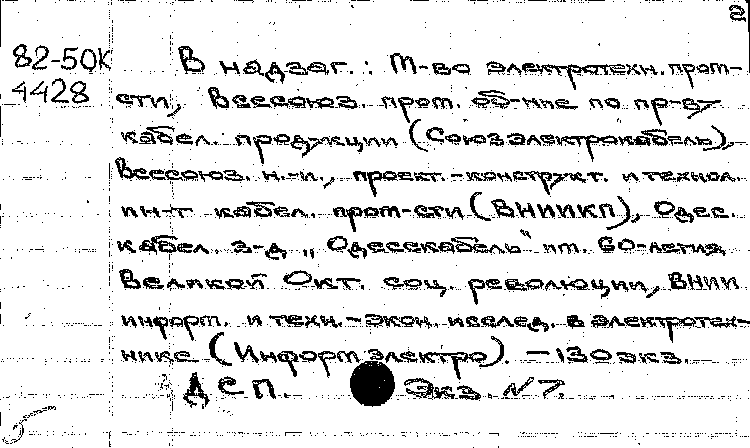 2
82-50К
4428
В надзаг.: М-во электротехн. пром-
сти, Всесоюз. пром. об-ние по пр-ву
кабел. продукции (Союзэлектрокабель),
Всесоюз. н.-и., проект.-конструкт. и технол.
ин-т кабел. пром-сти (ВНИИКП), Одес.
кабел. з-д „Одесскабель" им. 60-летия
Великой Окт. соц. революции, ВНИИ
информ. и техн.-экон. исслед. в электротех-
нике (Информэлектро). — 130 экз.
ДСП. Экз. N 7.